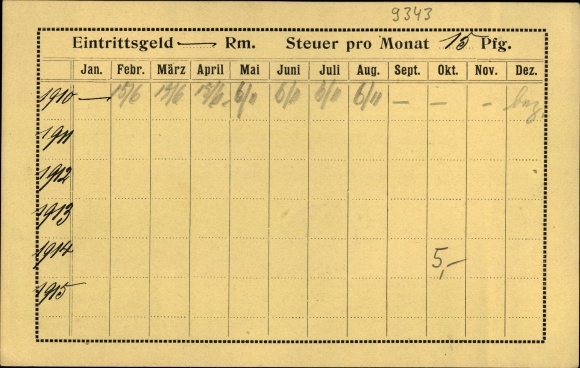 9343
Eintrittsgeld — Rm. Steuer pro Monat 15 Pfg.
Jan. Febr. März April Mai Juni Juli Aug. Sept. Okt. Nov. Dez.
1910 — 15/6 15/6 15/6 6/11 6/11 6/11 6/11 — — —
1911
1912
1913
1914 5,–
1915